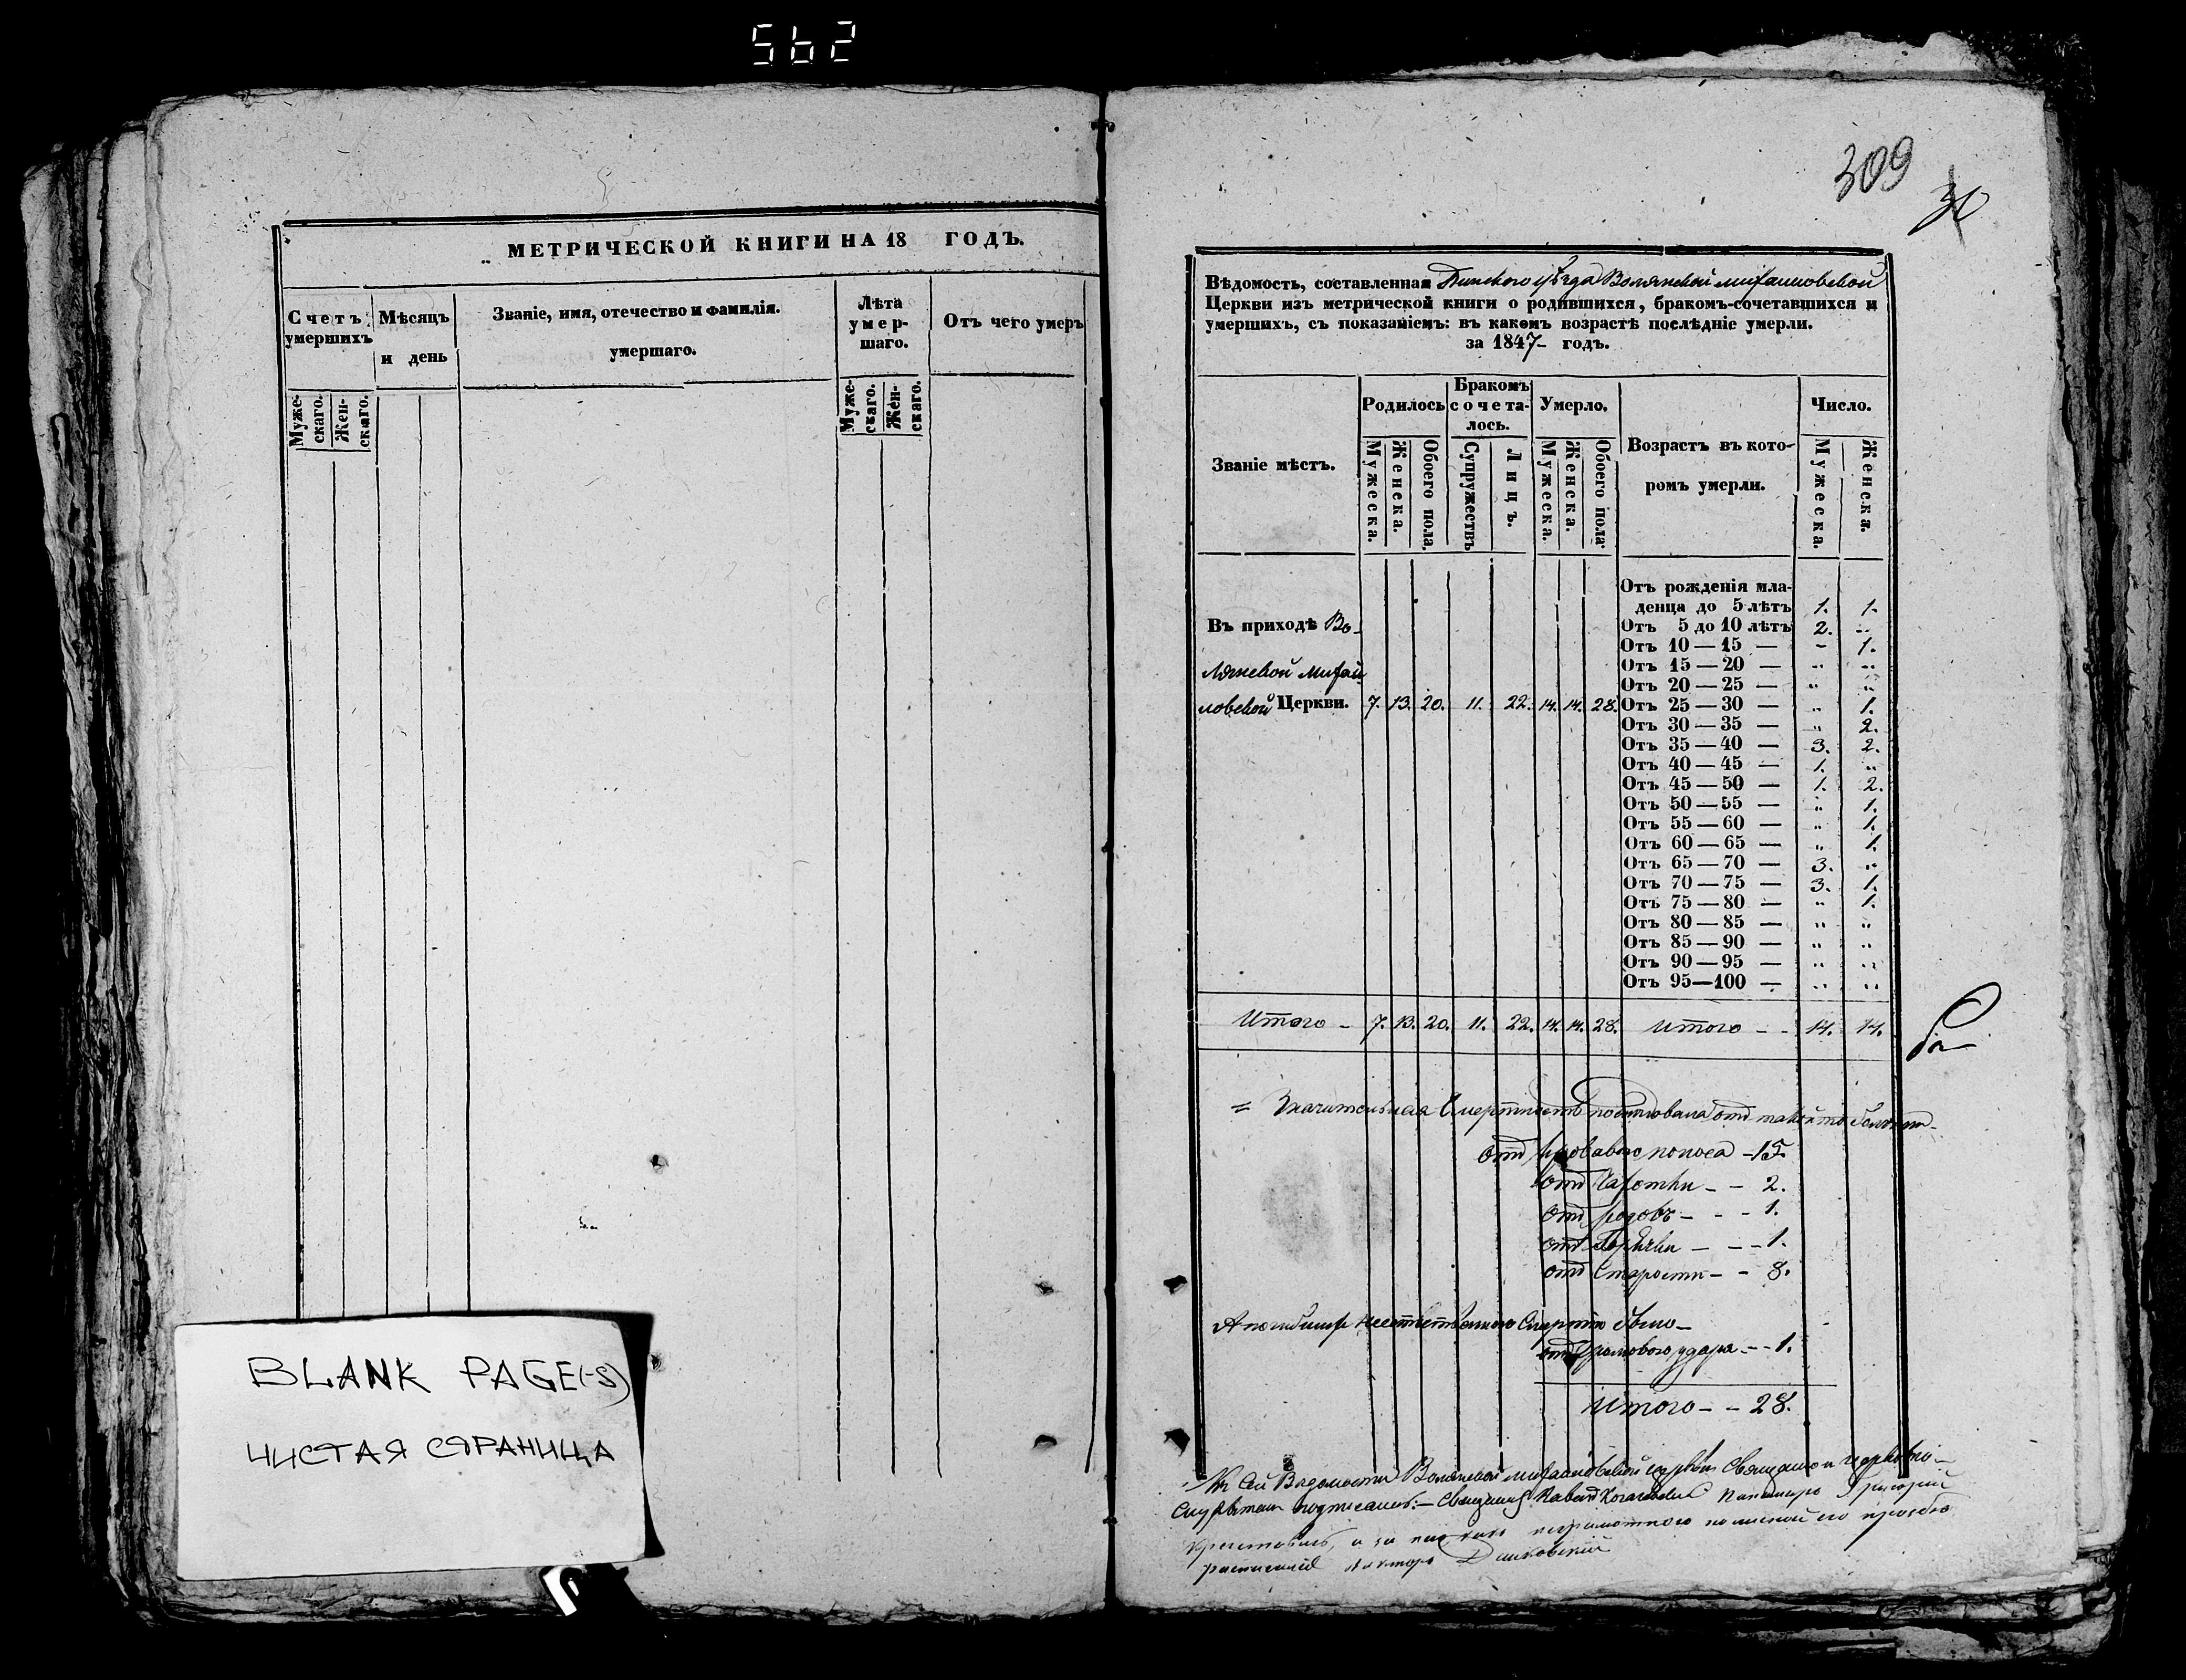 562
МЕТРИЧЕСКОЙ КНИГИ НА 18 ГОДЪ.
Счетъ умершихъ
Мѣсяцъ и день
Званіе, имя, отечество и фамилія.
умершаго.
Лѣта умер-
шаго.
Отъ чего умеръ
Муже-
скаго.
Жен-
скаго.
Муже-
скаго.
Жен-
скаго.
BLANK PAGE(-S)
ЧИСТАЯ СТРАНИЦА
309
30
Вѣдомость, составленная Пинскаго уѣзда Волянской михайловской
Церкви изъ метрической книги о родившихся, бракомъ-сочетавшихся и
умершихъ, съ показаніемъ: въ какомъ возрастѣ послѣдніе умерли.
за 1847- годъ.
Званіе мѣстъ.
Родилось
Бракомъ
сочета-
лось.
Умерло.
Возрастъ въ кото-
ромъ умерли.
Число.
Мужеска.
Женска.
Обоего пола.
Супружествъ
Лицъ.
Мужеска.
Женска.
Обоего пола.
Мужеска.
Женска.
Отъ рожденія мла-
денца до 5 лѣтъ 1. 1.
Въ приходѣ Во-
Отъ 5 до 10 лѣтъ 2. "
Отъ 10—15 — - 1.
Отъ 15—20 — " "
Отъ 20—25 — " "
ловской Церкви. 7. 13. 20. 11. 22. 14. 14. 28. Отъ 25—30 — " 1.
Отъ 30—35 — " 2.
Отъ 35—40 — 3. 2.
Отъ 40—45 — 1. "
Отъ 45—50 — 1. 2.
Отъ 50—55 — " 1.
Отъ 55—60 — " 1.
Отъ 60—65 — " 1.
Отъ 65—70 — 3. "
Отъ 70—75 — 3. 1.
Отъ 75—80 — " 1.
Отъ 80—85 — " "
Отъ 85—90 — " "
Отъ 90—95 — " "
Отъ 95—100 — " "
Итого - 7. 13. 20. 11. 22. 14. 14. 28. Итого - - 14. 14.
= Значительная Смертность
отъ кроваваго поноса - 15.
отъ Чахотки - - 2.
отъ родовъ - - - 1.
отъ Горячки - - - 1.
отъ Старости - - 8.
отъ Громового удара - - 1.
Итого - - 28.
Къ Сей Вѣдомости Волянской михайловской церкви Священно и церковно-